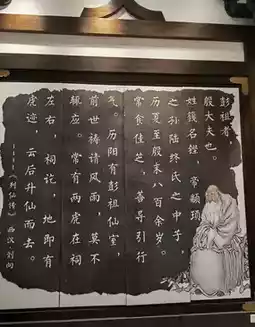 彭祖者，
殷大夫也。
姓篯名铿，帝颛顼
之孙陆终氏之中子，
历夏至殷末八百余岁。
常食桂芝，善导引行
气。历阳有彭祖仙室，
前世祷请风雨，莫不
辄应。常有两虎在祠
左右，祠讫，地即有
虎迹，云后升仙而去。
----《列仙传》西汉·刘向